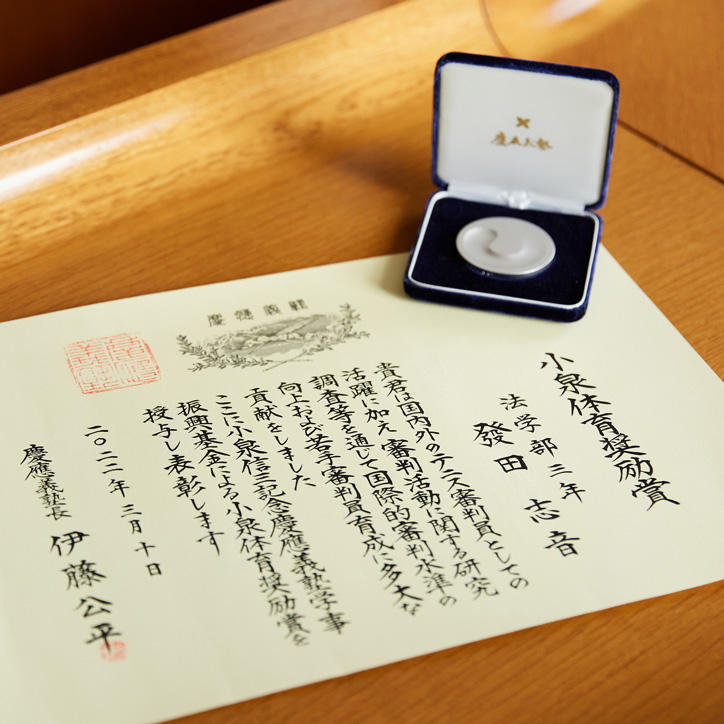 慶應義塾
慶應義塾
小泉体育奨励賞
法学部三年
發田 志音
貴君は国内外のテニス審判員としての
活躍に加え 審判活動に関する研究
調査等を通じて国際的審判水準の
向上および若手審判員育成に多大な
貢献をしました
ここに小泉信三記念慶應義塾学事
振興基金による小泉体育奨励賞を
授与し表彰します
二〇二二年三月十日
慶應義塾長 伊藤公平